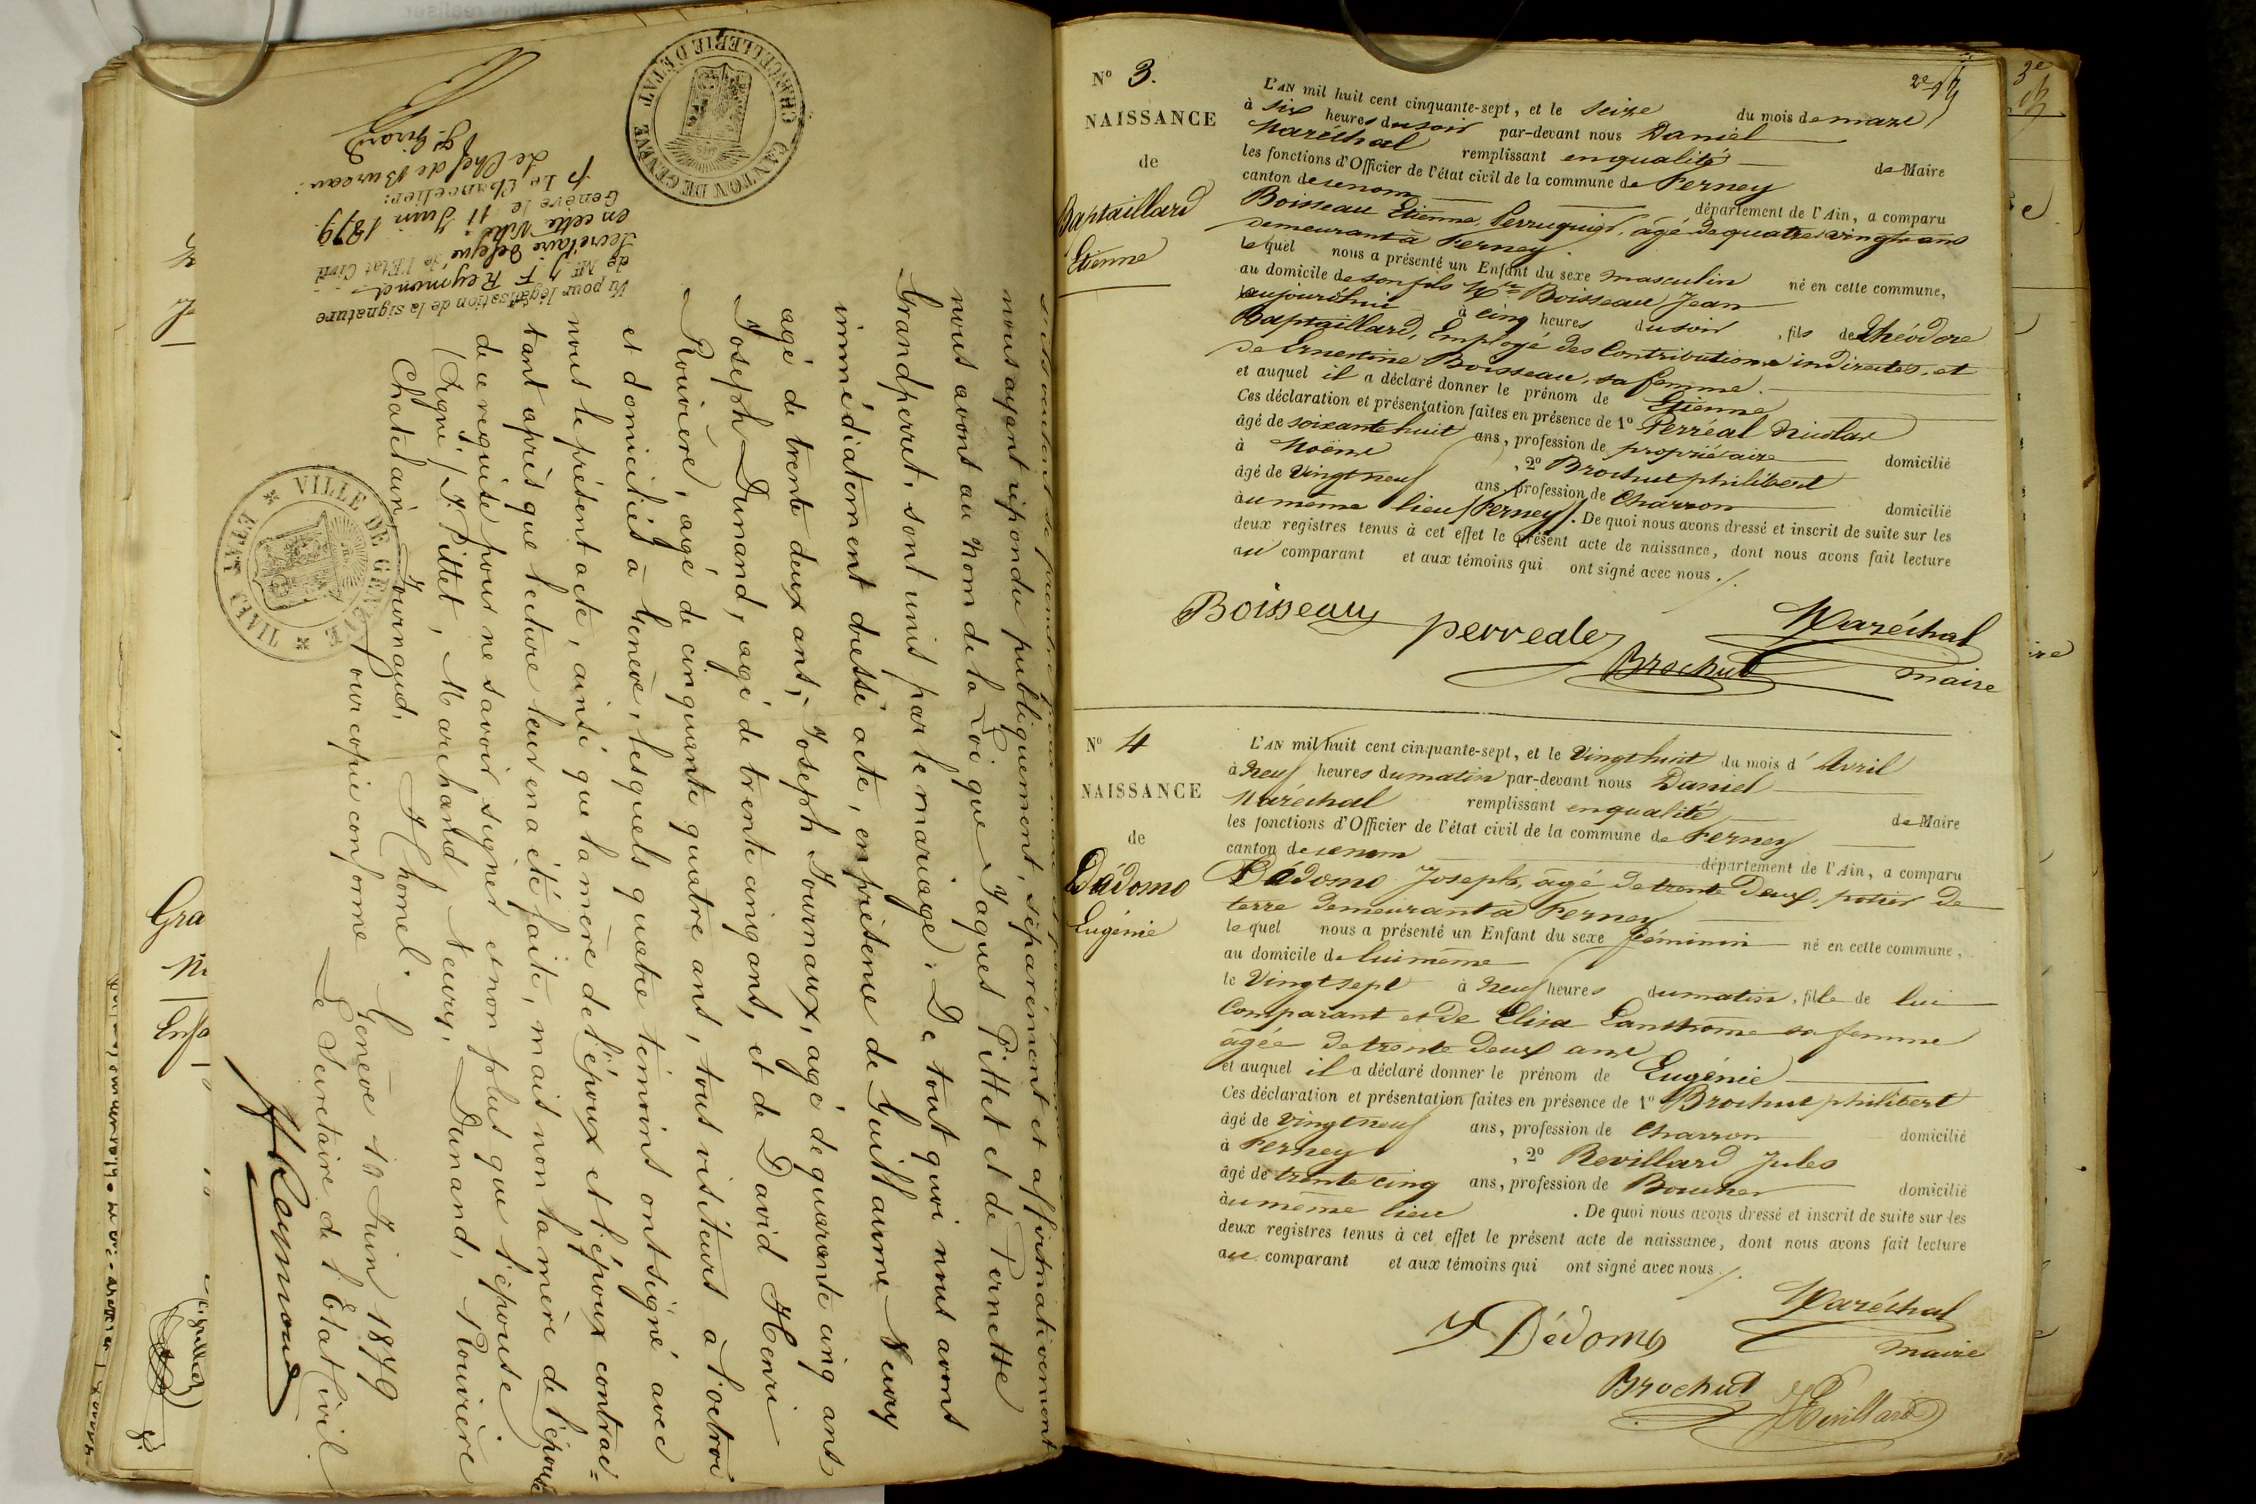 nous ayant répondu publiquement, séparément et affirmativement
nous avons au nom de la Loi que Jaques Pittet et de Pernette
Grandperret, sont unis par le mariage. De tout quoi nous avons
immédiatement dressé acte, en présence de Guillaume Neury
agé de trente deux ans, Joseph Fournaux, agé de quarante cinq ans
Joseph Dunand, agé de trente cinq ans, et de David Henri
Rouvière, agé de cinquante quatre ans, tous visiteurs à l'octroi
et domiciliés à Genève, lesquels quatre témoins ont signé avec
nous le présent acte, ainsi que la mère de l'époux et l'époux contrac=
tant après que lecture leur en a été faite, mais non la mère de l'épouse
de ce requise pour ne savoir signer et non plus que l'épouse
(Signé) J. Pittet, Marchand, Neury, Dunand, Rouvière
Chatelain, Fournaud, Chomel.
Pour copie conforme
Genève 10 Juin 1879
Le Secrétaire de l'Etat Civil
Reymond
VILLE DE GENÈVE
ETAT CIVIL
Vu pour légalisation de la signature
de Mr J. F. Reymond
Secrétaire délégué de l'Etat Civil
en cette Ville
Genève le 11 Juin 1879.
p. Le Chancelier:
Le Chef de Bureau:
Girard
CANTON DE GENÈVE
CHANCELLERIE D'ETAT
Gra
Enfa
2e
No 3.
NAISSANCE
de
Baptaillard
Etienne
L'AN mil huit cent cinquante-sept, et le Seize du mois de mars
à six heures du soir par-devant nous Daniel
Maréchal remplissant en qualité de Maire
les fonctions d'Officier de l'état civil de la commune de Ferney
canton de ce nom département de l'Ain, a comparu
Boisseau Etienne, Perruquier, âgé de quatre vingts ans
demeurant à Ferney.
lequel nous a présenté un Enfant du sexe masculin né en cette commune,
au domicile de son fils Boisseau Jean
aujourd'hui à cinq heures du soir, fils de Théodore
Baptaillard, Employé des Contributions indirectes, et
de Ernestine Boisseau, sa femme.
et auquel il a déclaré donner le prénom de Etienne
Ces déclaration et présentation faites en présence de 1o Perréal Nicolas
âgé de soixante huit ans, profession de propriétaire domicilié
à Moëns, 2o Brochut philibert
âgé de Vingt neuf ans, profession de Charron domicilié
au même lieu (Ferney). De quoi nous avons dressé et inscrit de suite sur les
deux registres tenus à cet effet le présent acte de naissance, dont nous avons fait lecture
au comparant et aux témoins qui ont signé avec nous.
Boisseau perreal Maréchal
Brochut maire
No 4
NAISSANCE
de
Dédomo
Eugénie
L'AN mil huit cent cinquante-sept, et le Vingt huit du mois d'Avril
à Neuf heures du matin par-devant nous Daniel
Maréchal remplissant en qualité de Maire
les fonctions d'Officier de l'état civil de la commune de Ferney
canton de ce nom département de l'Ain, a comparu
Dédomo Joseph, âgé de trente Deux, potier de
terre demeurant à Ferney
lequel nous a présenté un Enfant du sexe féminin né en cette commune,
au domicile de lui même
le Vingt sept à Neuf heures du matin, fille de lui
Comparant et de Elisa Lanthome sa femme
âgée de trente Deux ans
et auquel il a déclaré donner le prénom de Eugénie
Ces déclaration et présentation faites en présence de 1o Brochut philibert
âgé de Vingt neuf ans, profession de Charron domicilié
à Ferney, 2o Revillard Jules
âgé de trente cinq ans, profession de Boucher domicilié
au même lieu. De quoi nous avons dressé et inscrit de suite sur les
deux registres tenus à cet effet le présent acte de naissance, dont nous avons fait lecture
au comparant et aux témoins qui ont signé avec nous.
Maréchal
J Dédomo maire
Brochut Revillard
3e